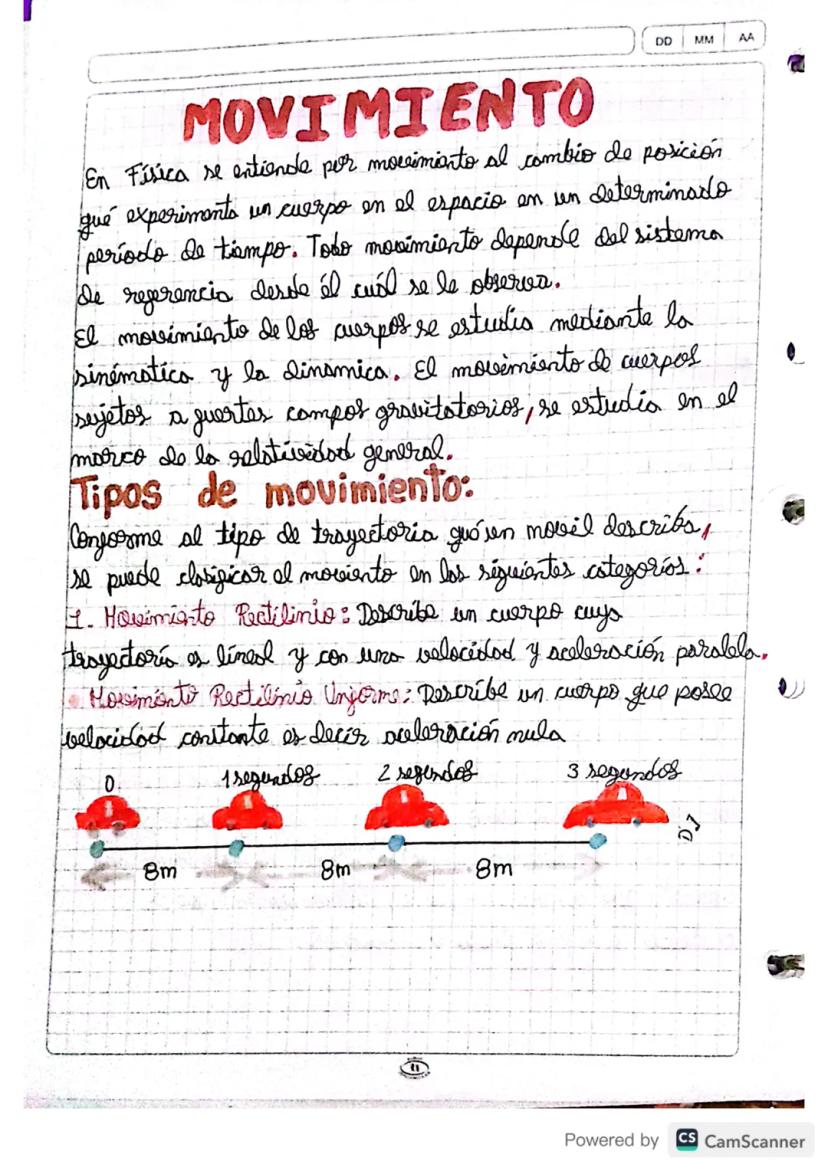 DD MM AA
MOVIMIENTO
En Física se entiende por movimiento al cambio de posición
qué experimenta un cuerpo en el espacio en un determinado
período de tiempo. Todo movimiento depende del sistema
de referencia desde él cuál se le observa.
El movimiento de los cuerpos se estudia mediante la
sinématica y la dinamica. El movimiento de cuerpos
sujetos a fuertes campos gravitatorios, se estudia en el
marco de la relatividad general.
Tipos de movimiento:
Conforme al tipo de trayectoria qué un movil describa,
se puede clasificar el moviento en las siguientes categorías:
1. Movimiento Rectilinio: Describe un cuerpo cuya
trayectoría es líneal y con una velocidad y aceleración paralela.
Movimiento Rectilinio Uniforme: Describe un cuerpo que posee
velocidad constante es decir aceleración nula
0 1 segundos 2 segundos 3 segundos
8m 8m 8m
Powered by CS CamScanner